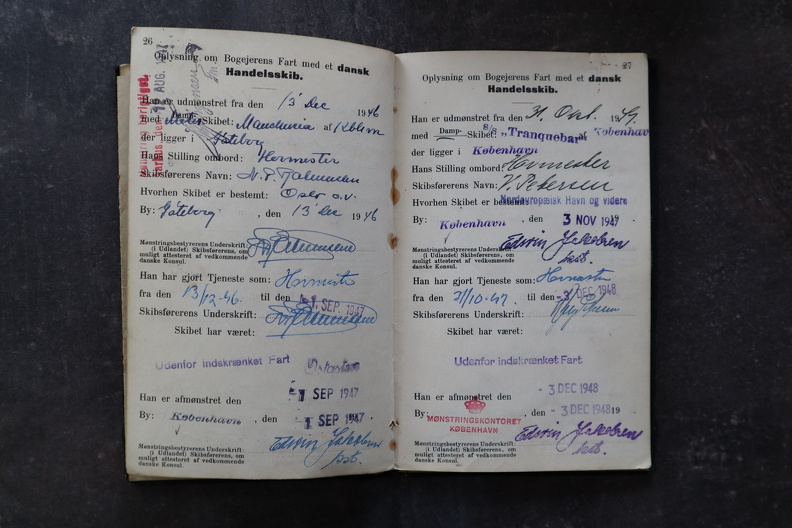 26
Oplysning om Bogejerens Fart med et dansk
Handelsskib.
Han er udmønstret fra den 13 Dec 1946
med Damp- Motor Skibet: Manchuria af Kbhvn
der ligger i Göteborg
Hans Stilling ombord: Hovmester
Skibsførerens Navn: N. P.
Hvorhen Skibet er bestemt: Oslo o.v.
By: Göteborg, den 13 Dec 1946
Mønstringsbestyrerens Underskrift
(i Udlandet) Skibsførerens, om
muligt attesteret af vedkommende
danske Konsul.
Han har gjort Tjeneste som: Hovmester
fra den 13/12-46. til den -1 SEP. 1947
Skibsførerens Underskrift:
Skibet har været:
Udenfor indskrænket Fart
Han er afmønstret den -1 SEP 1947
By: København, den -1 SEP 1947
Mønstringsbestyrerens Underskrift:
(i Udlandet) Skibsførerens, om
muligt attesteret af vedkommende
danske Konsul.
Edwin Jakobsen
kst.
AUG. 1947
27
Oplysning om Bogejerens Fart med et dansk
Handelsskib.
Han er udmønstret fra den 31. Okt. 1947.
med Damp- Skibet: S/S "Tranquebar" af København
der ligger i København
Hans Stilling ombord: Hovmester
Skibsførerens Navn: V. Petersen
Hvorhen Skibet er bestemt: Nordeuropæisk Havn og videre
By: København, den 3 NOV 1947 19
Mønstringsbestyrerens Underskrift
(i Udlandet) Skibsførerens, om
muligt attesteret af vedkommende
danske Konsul.
Edwin Jakobsen
kst.
Han har gjort Tjeneste som: Hovmester
fra den 31/10-47. til den -3 DEC 1948
Skibsførerens Underskrift:
Skibet har været:
Udenfor indskrænket Fart
Han er afmønstret den -3 DEC 1948
By: , den -3 DEC 1948 19
MØNSTRINGSKONTORET
KØBENHAVN
Mønstringsbestyrerens Underskrift:
(i Udlandet) Skibsførerens, om
muligt attesteret af vedkommende
danske Konsul.
Edwin Jakobsen
kst.